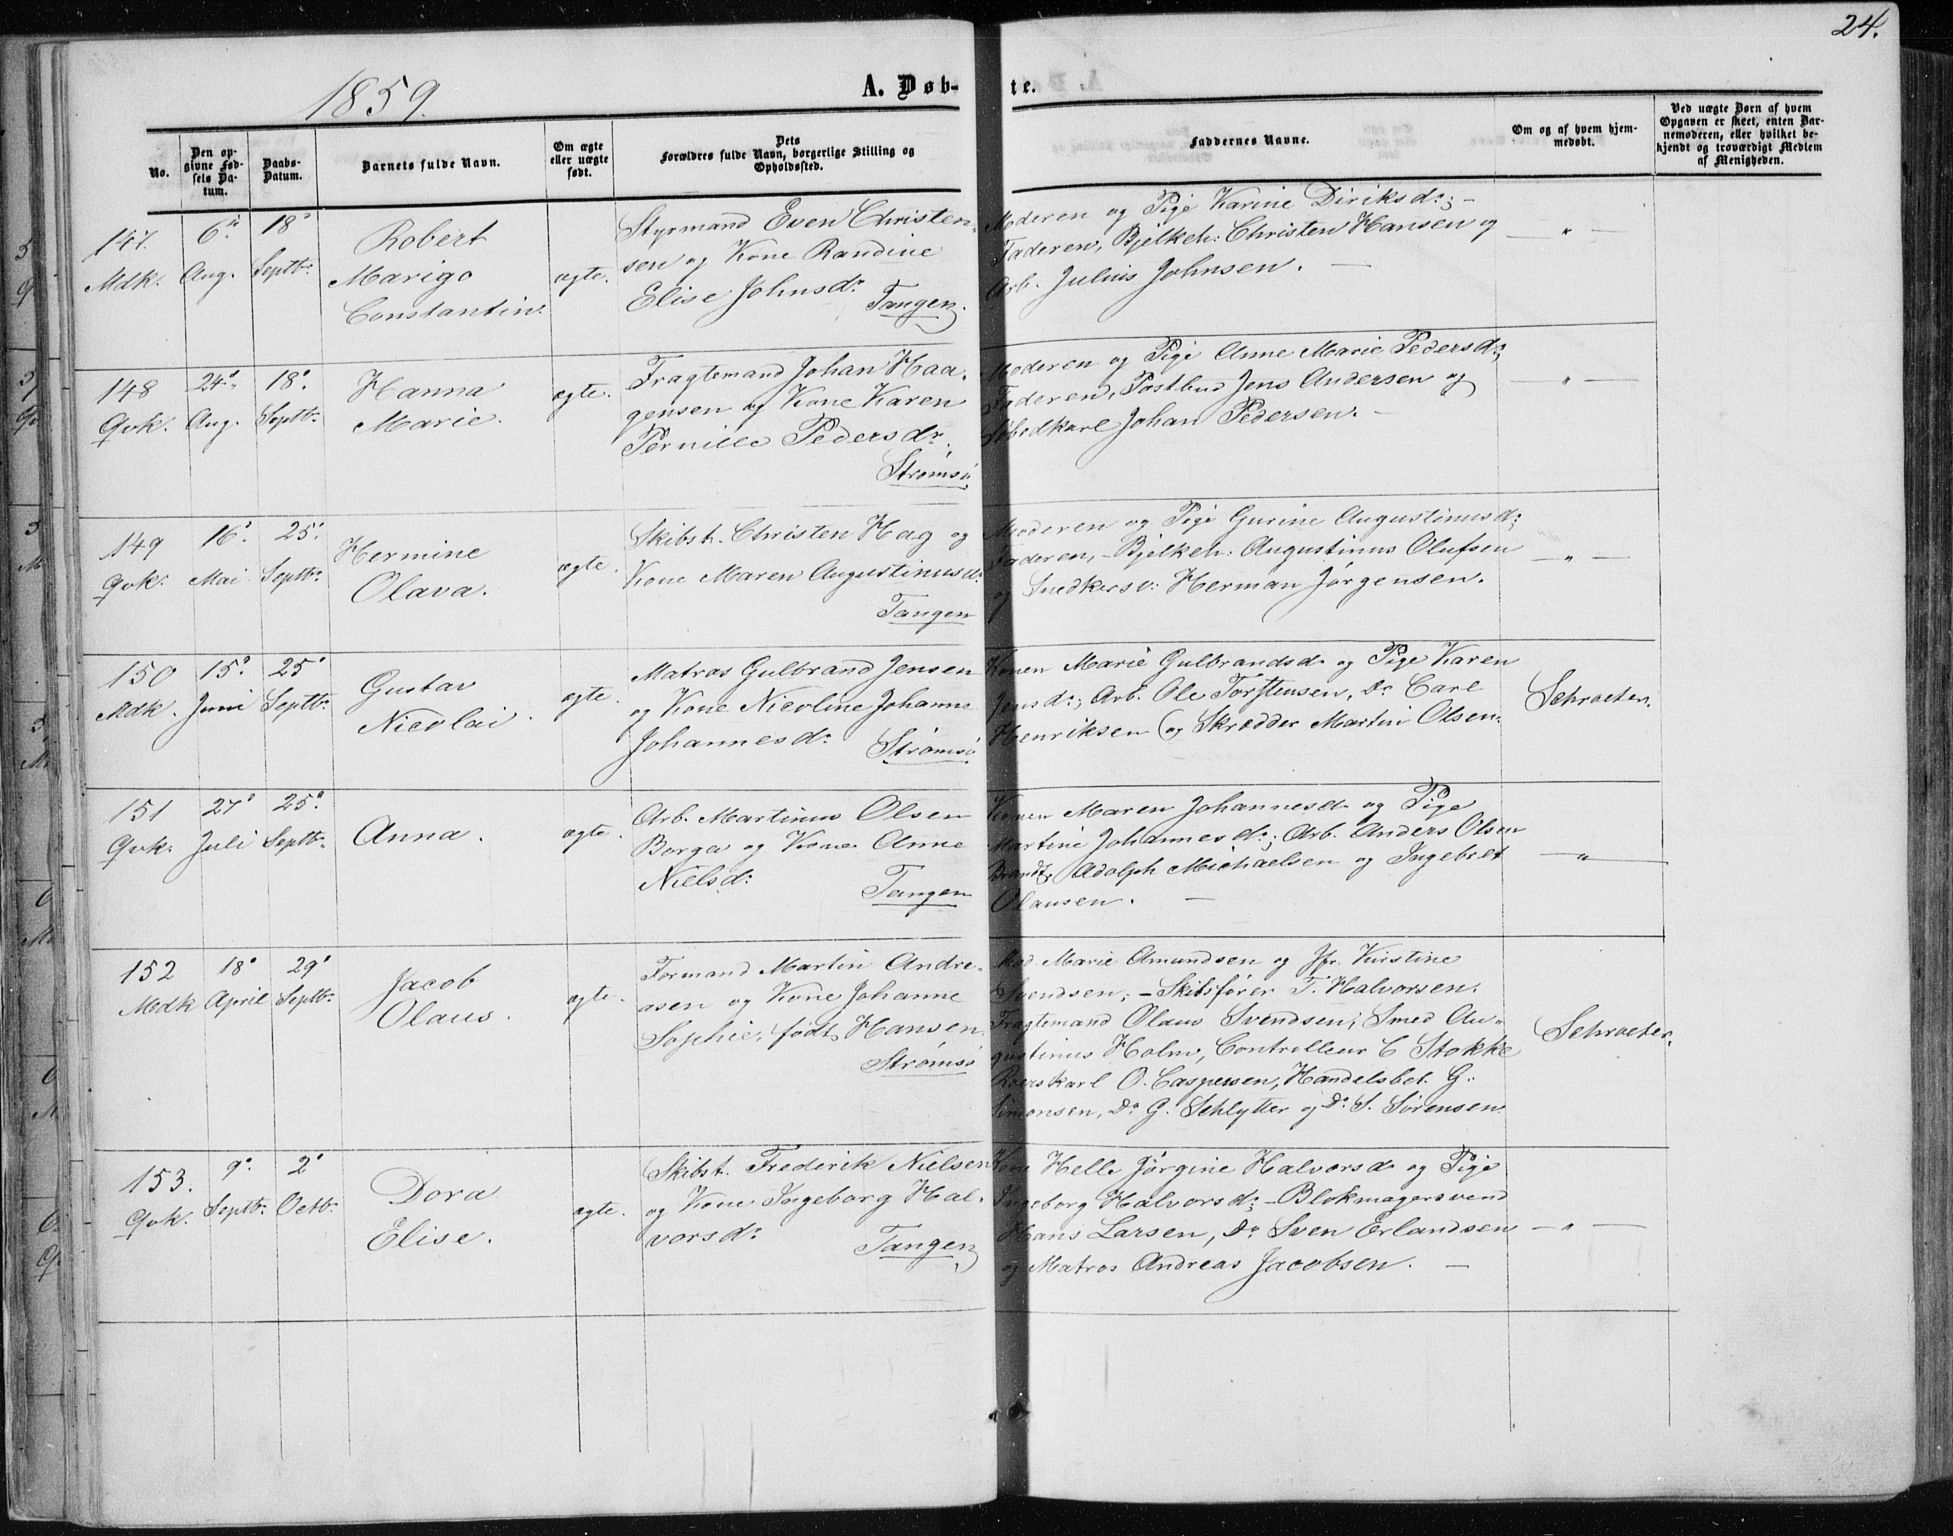 24.
1859.
A. Døb-
te.
No.
Den op-
givne Fød-
sels Da-
tum.
Daabs-
Datum.
Barnets fulde Navn.
Om ægte
eller uægte
født.
Dets
Forældres fulde Navn, borgerlige Stilling og
Opholdssted.
Faddernes Navne.
Om og af hvem hjem-
medøbt.
Ved uægte Børn af hvem
Opgaven er skeet, enten Bar-
nemoderen, eller hvilket be-
kjendt og troværdigt Medlem
af Menigheden.
147.
Mdk.
6te
Aug.
18de
Septbr.
Robert
Marigo
Constantin.
ægte.
Styrmand Even Christen-
sen og Kone Randine
Elise Johnsdr.
Tangen.
Moderen og Pige Karine Diriksdr; -
Faderen, Bjelkeh: Christen Hansen og
Arb. Julius Johnsen. —
— " —
148
Qvk.
24de
Aug.
18de
Septbr.
Hanna
Marie.
ægte.
Fragtemand Johan Haa-
gensen og Kone Karen
Pernille Pedersdr.
Strømsø
Moderen og Pige Anne Marie Pedersdr,
Faderen, Postbud Jens Andersen og
Løbedkarl Johan Pedersen. -
— " —
149
Qvk:
16de
Mai
25de
Septbr.
Hermine
Olava.
ægte.
Skibst. Christen Hag og
Kone Maren Augustinusdr.
Tangen
Moderen og Pige Gurine Augustinusdr;
Faderen, - Bjelkeh: Augustinus Olufsen
og Snedkersv: Herman Jørgensen.
— " —
150
Mdk.
15de
Juni
25de
Septbr.
Gustav
Nicolai.
ægte.
Matros Gulbrand Jensen
og Kone Nicoline Johanne
Johannesdr.
Strømsø
Konen Marie Gulbrandsdr og Pige Karen
Jensdr; Arb. Ole Torstensen, Do Carl
Henriksen og Skrædder Martin Olsen.
Schroeter.
151
Qvk.
27de
Juli
25de
Septbr.
Anna.
ægte.
Arb. Martinus Olsen
Borga og Kone Anne
Nielsdr.
Tangen
Konen Maren Johannesdr og Pige
Martine Johannesdr; Arb. Anders Olsen
Brandt, Adolph Michaelsen og Ingebret
Olausen. —
— " —
152
Mdk
18de
April
29de
Septbr.
Jacob
Olaus.
ægte.
Formand Martin Andre-
asen og Kone Johanne
Sophie, født Hansen.
Strømsø
Mad. Marie Amundsen og Jfr. Kirstine
Svendsen; - Skibsfører T. Halvorsen,
Fragtemand Olaus Svendsen; Smed Au-
gustinus Holm, Controlleur C Stokke
Roerskarl O. Caspersen, Handelsbet. G.
Simonsen, Do G. Schlytter og Do S. Sørensen.
Schroeter.
153.
Qvk.
9de
Septbr.
2de
Octbr.
Dora
Elise.
ægte.
Skibst. Frederik Nielsen
og Kone Ingeborg Hal-
vorsdr.
Tangen
Kone Helle Jørgine Halvorsdr og Pige
Ingeborg Halvorsdr; - Blokmagersvend
Hans Larsen, Do Sven Erlandsen
og Matros Andreas Jacobsen. —
— " —